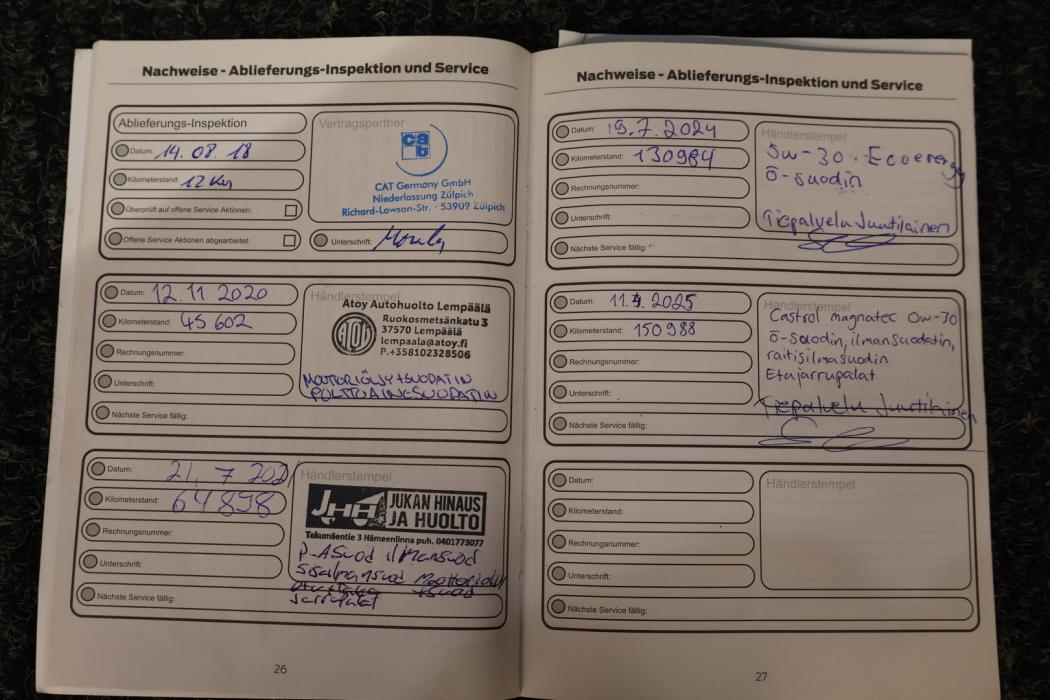 Nachweise - Ablieferungs-Inspektion und Service
Ablieferungs-Inspektion
Datum: 14.08.18
Kilometerstand: 12 Km
Überprüft auf offene Service Aktionen:
Offene Service Aktionen abgearbeitet:
Vertragspartner
cat
CAT Germany GmbH
Niederlassung Zülpich
Richard-Lawson-Str. · 53909 Zülpich
Unterschrift:
Datum: 12.11 2020
Kilometerstand: 45 602
Rechnungsnummer:
Unterschrift:
Nächste Service fällig:
Händlerstempel
Atoy Autohuolto Lempäälä
ATOY
Ruokosmetsänkatu 3
37570 Lempäälä
lempaala@atoy.fi
P.+358102328506
MOOTTORIÖLJY+SUODATIN
POLTTOAINESUODATIN
Datum: 21. 7 2021
Kilometerstand: 64898
Rechnungsnummer:
Unterschrift:
Nächste Service fällig:
Händlerstempel
JHH JUKAN HINAUS
JA HUOLTO
Takumäentie 3 Hämeenlinna puh. 0401773077
P-ASuod ilmansuod
Sisäilmansuod Moottoriöljy
+suod
Jarrupalat
26
Nachweise - Ablieferungs-Inspektion und Service
Datum: 19.7.2024
Kilometerstand: 130984
Rechnungsnummer:
Unterschrift:
Nächste Service fällig:
Händlerstempel
5w-30 Ecoenergy
ö-suodin
Tiepalvelu Juutilainen
Datum: 11.4.2025
Kilometerstand: 150988
Rechnungsnummer:
Unterschrift:
Nächste Service fällig:
Händlerstempel
Castrol magnatec 0w-30
ö-suodin, ilmansuodatin,
raitisilmasuodin
Etujarrupalat
Tiepalvelu Juutilainen
Datum:
Kilometerstand:
Rechnungsnummer:
Unterschrift:
Nächste Service fällig:
Händlerstempel
27